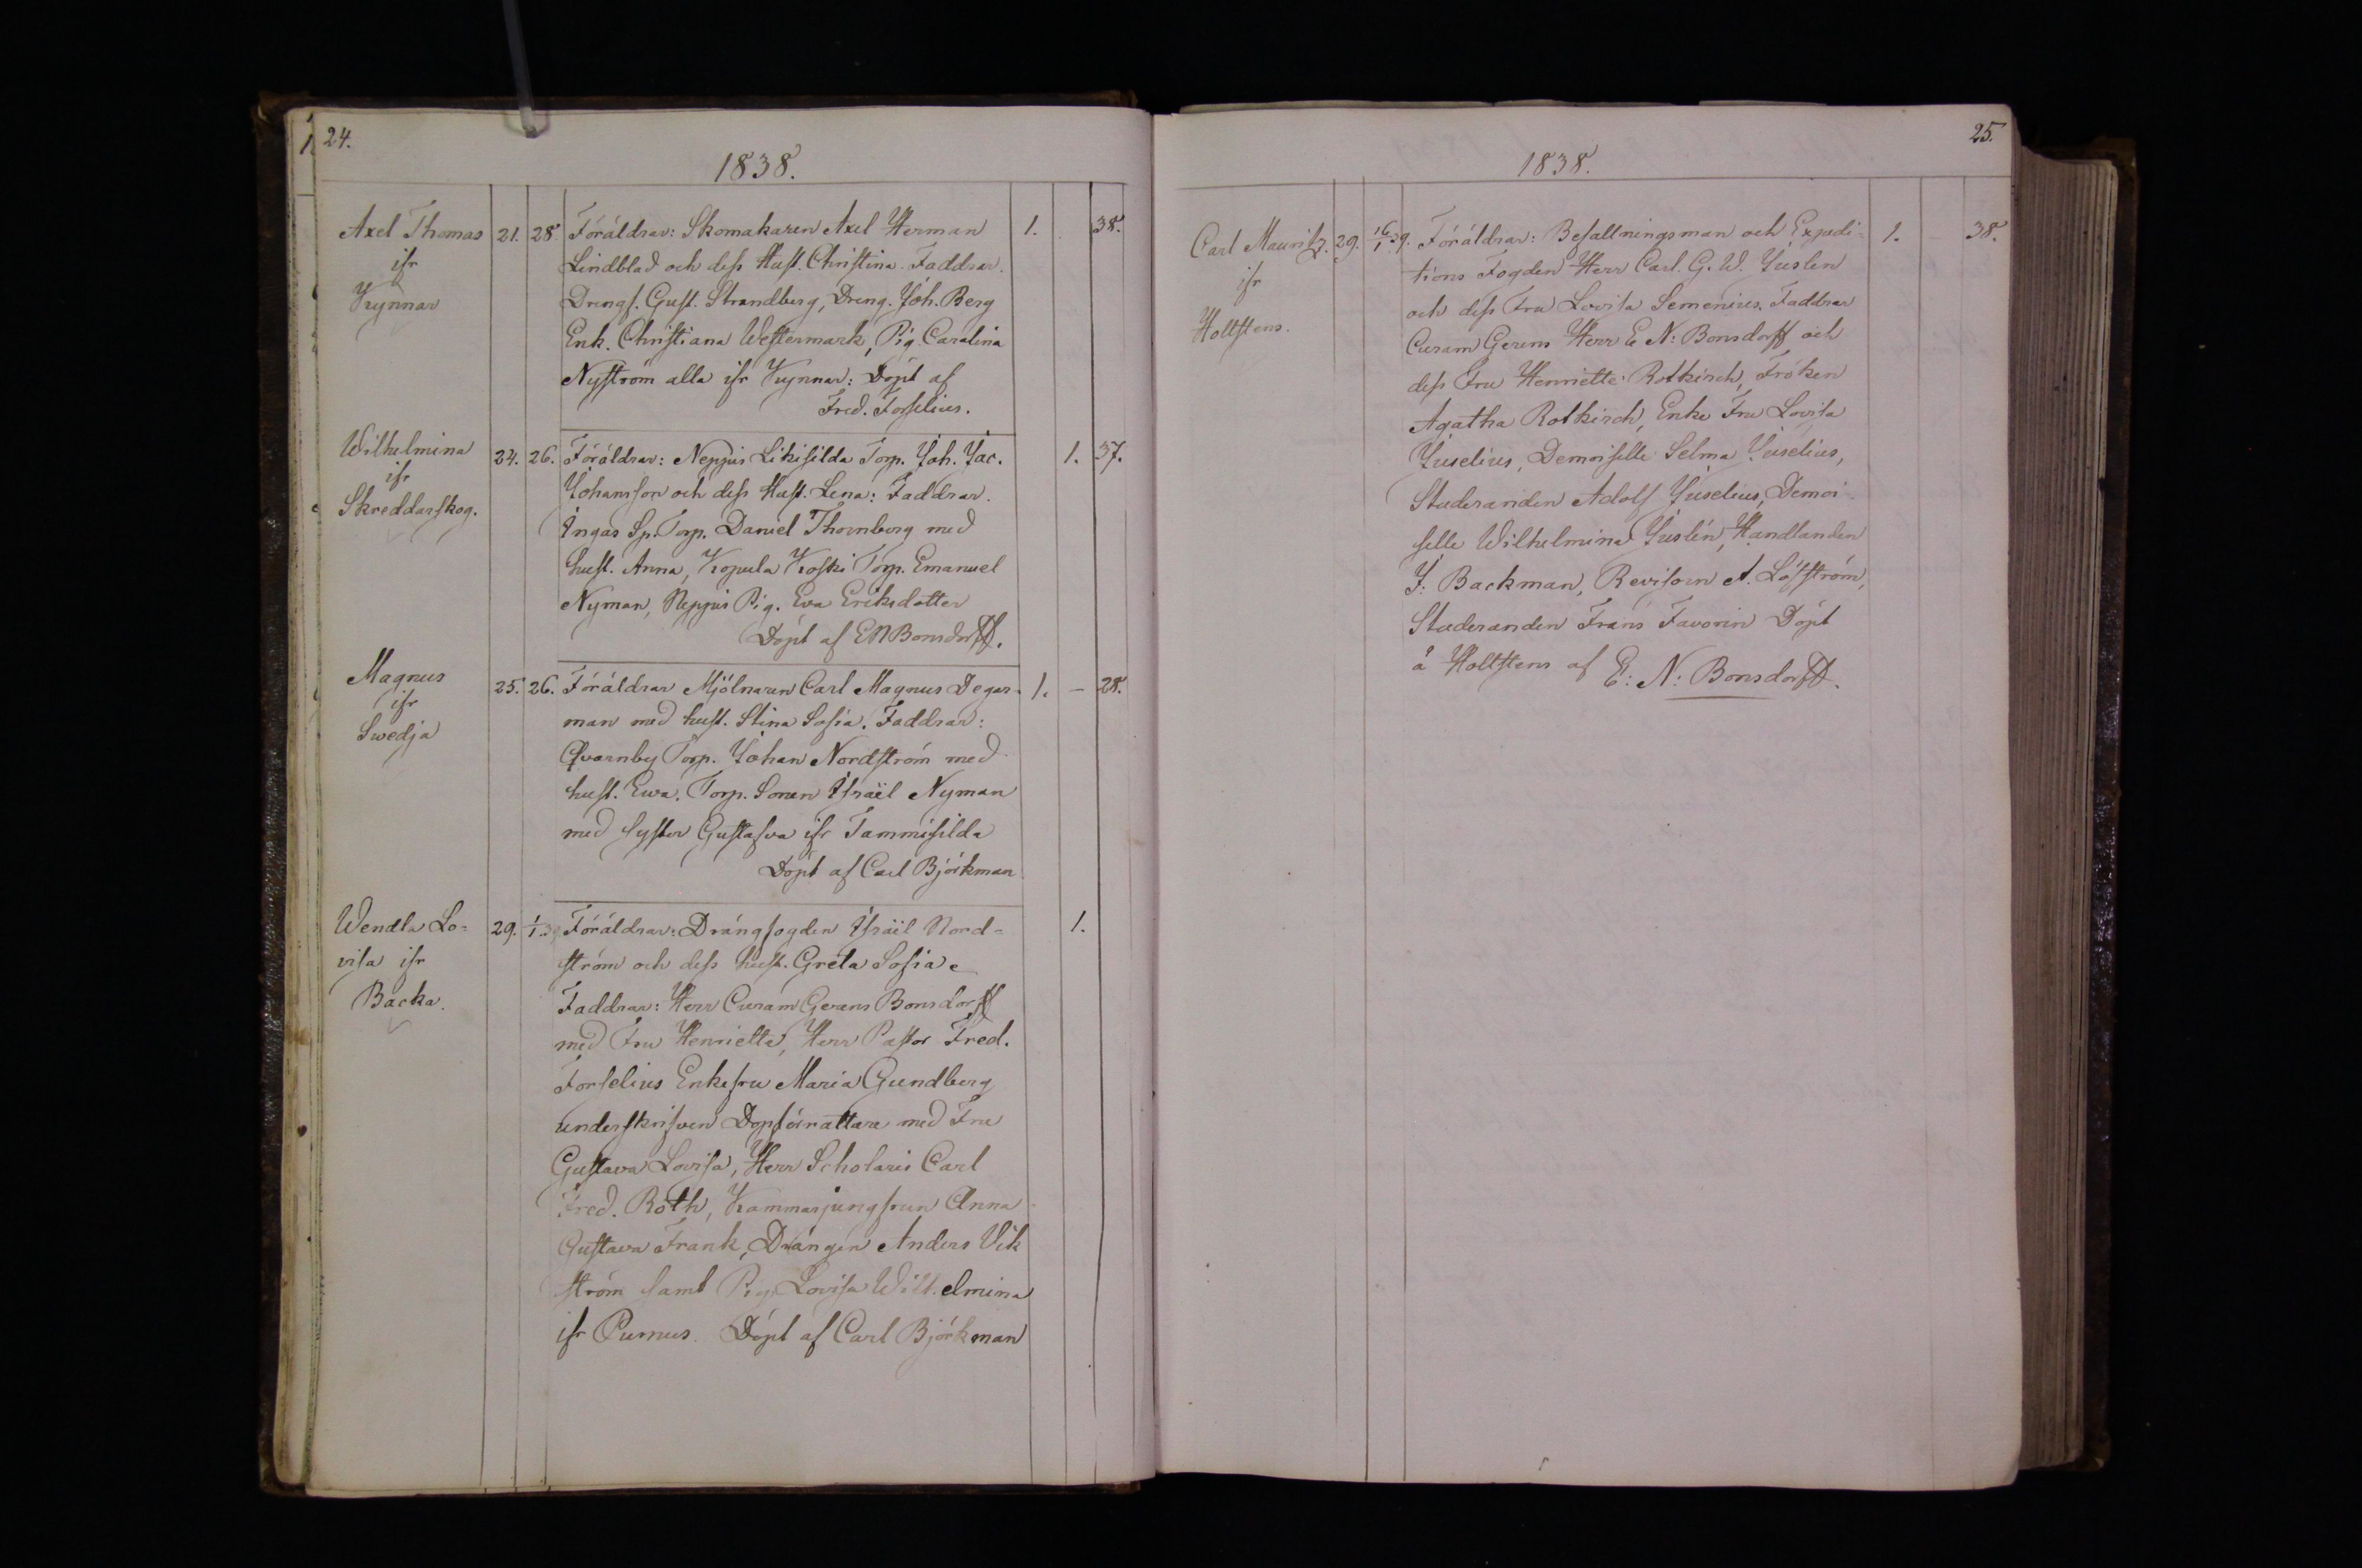 24.
1838.
Axel Thomas 21. 28. Föräldrar: Skomakaren Axel Herman 1. 38.
ifr Lindblad och dess Hust. Christina. Faddrar.
Kynnar Drengs. Gust. Strandberg, Dreng. Joh. Berg
Enk. Christiana Westermark, Pig. Carolina
Nyström alla ifr Kynnar: Döpt af
Fred. Forselius.
Wilhelmina 24. 26. Föräldrar: Neppis Likisilda Torp. Joh. Jac. 1. 37.
ifr Johansson och dess Hust. Lena: Faddrar.
Skreddarskog. Ingas Sp. Torp. Daniel Thornberg med
hust. Anna, Kopula Koski Torp. Emanuel
Nyman, Neppis Pig. Eva Eriksdotter
Döpt af E N Bonsdorff.
Magnus 25. 26. Föräldrar Mjölnaren Carl Magnus Deger- 1. – 28.
ifr man med hust. Stina Sofia. Faddrar:
Swedja Qvarnby Torp. Johan Nordström med
hust. Ewa. Torp. Sonen Israël Nyman
med syster Gustafva ifr Tammisilda
Döpt af Carl Björkman
Wendla Lo= 29. 1/1 39 Föräldrar: Drängfogden Israël Nord= 1.
visa ifr ström och dess hust. Greta Sofia
Backa. Faddrar: Herr Curam Gerens Bonsdorff
med Fru Henriette, Herr Pastor Fred.
Forselius Enkefru Maria Gundberg
underskrifven Dopförrättare med Fru
Gustava Lovisa, Herr Scholaris Carl
Fred. Roth, Kammarjungfrun Anna
Gustava Frank, Drängen Anders Vik
ström samt Pig. Lovisa Wilhelmina
ifr Purnus. Döpt af Carl Björkman
25.
1838.
Carl Mauritz. 29. 16/1 39. Föräldrar: Befallningsman och Expedi- 1. 38.
ifr tions Fogden Herr Carl. G. W. Juslen
Holtstens. och dess Fru Lovisa Semenius. Faddrar
Curam Gerens Herr E N: Bonsdorff och
dess Fru Henriette Rotkirch, Fröken
Agatha Rotkirch, Enke Fru Lovisa
Juselius, Demoiselle Selma Juselius,
Studeranden Adolf Juselius, Demoi-
selle Wilhelmina Juslén, Handlanden
J: Backman, Revisorn A. Löfström,
Studeranden Frans Favorin Döpt
å Holtstens af E: N: Bonsdorff.